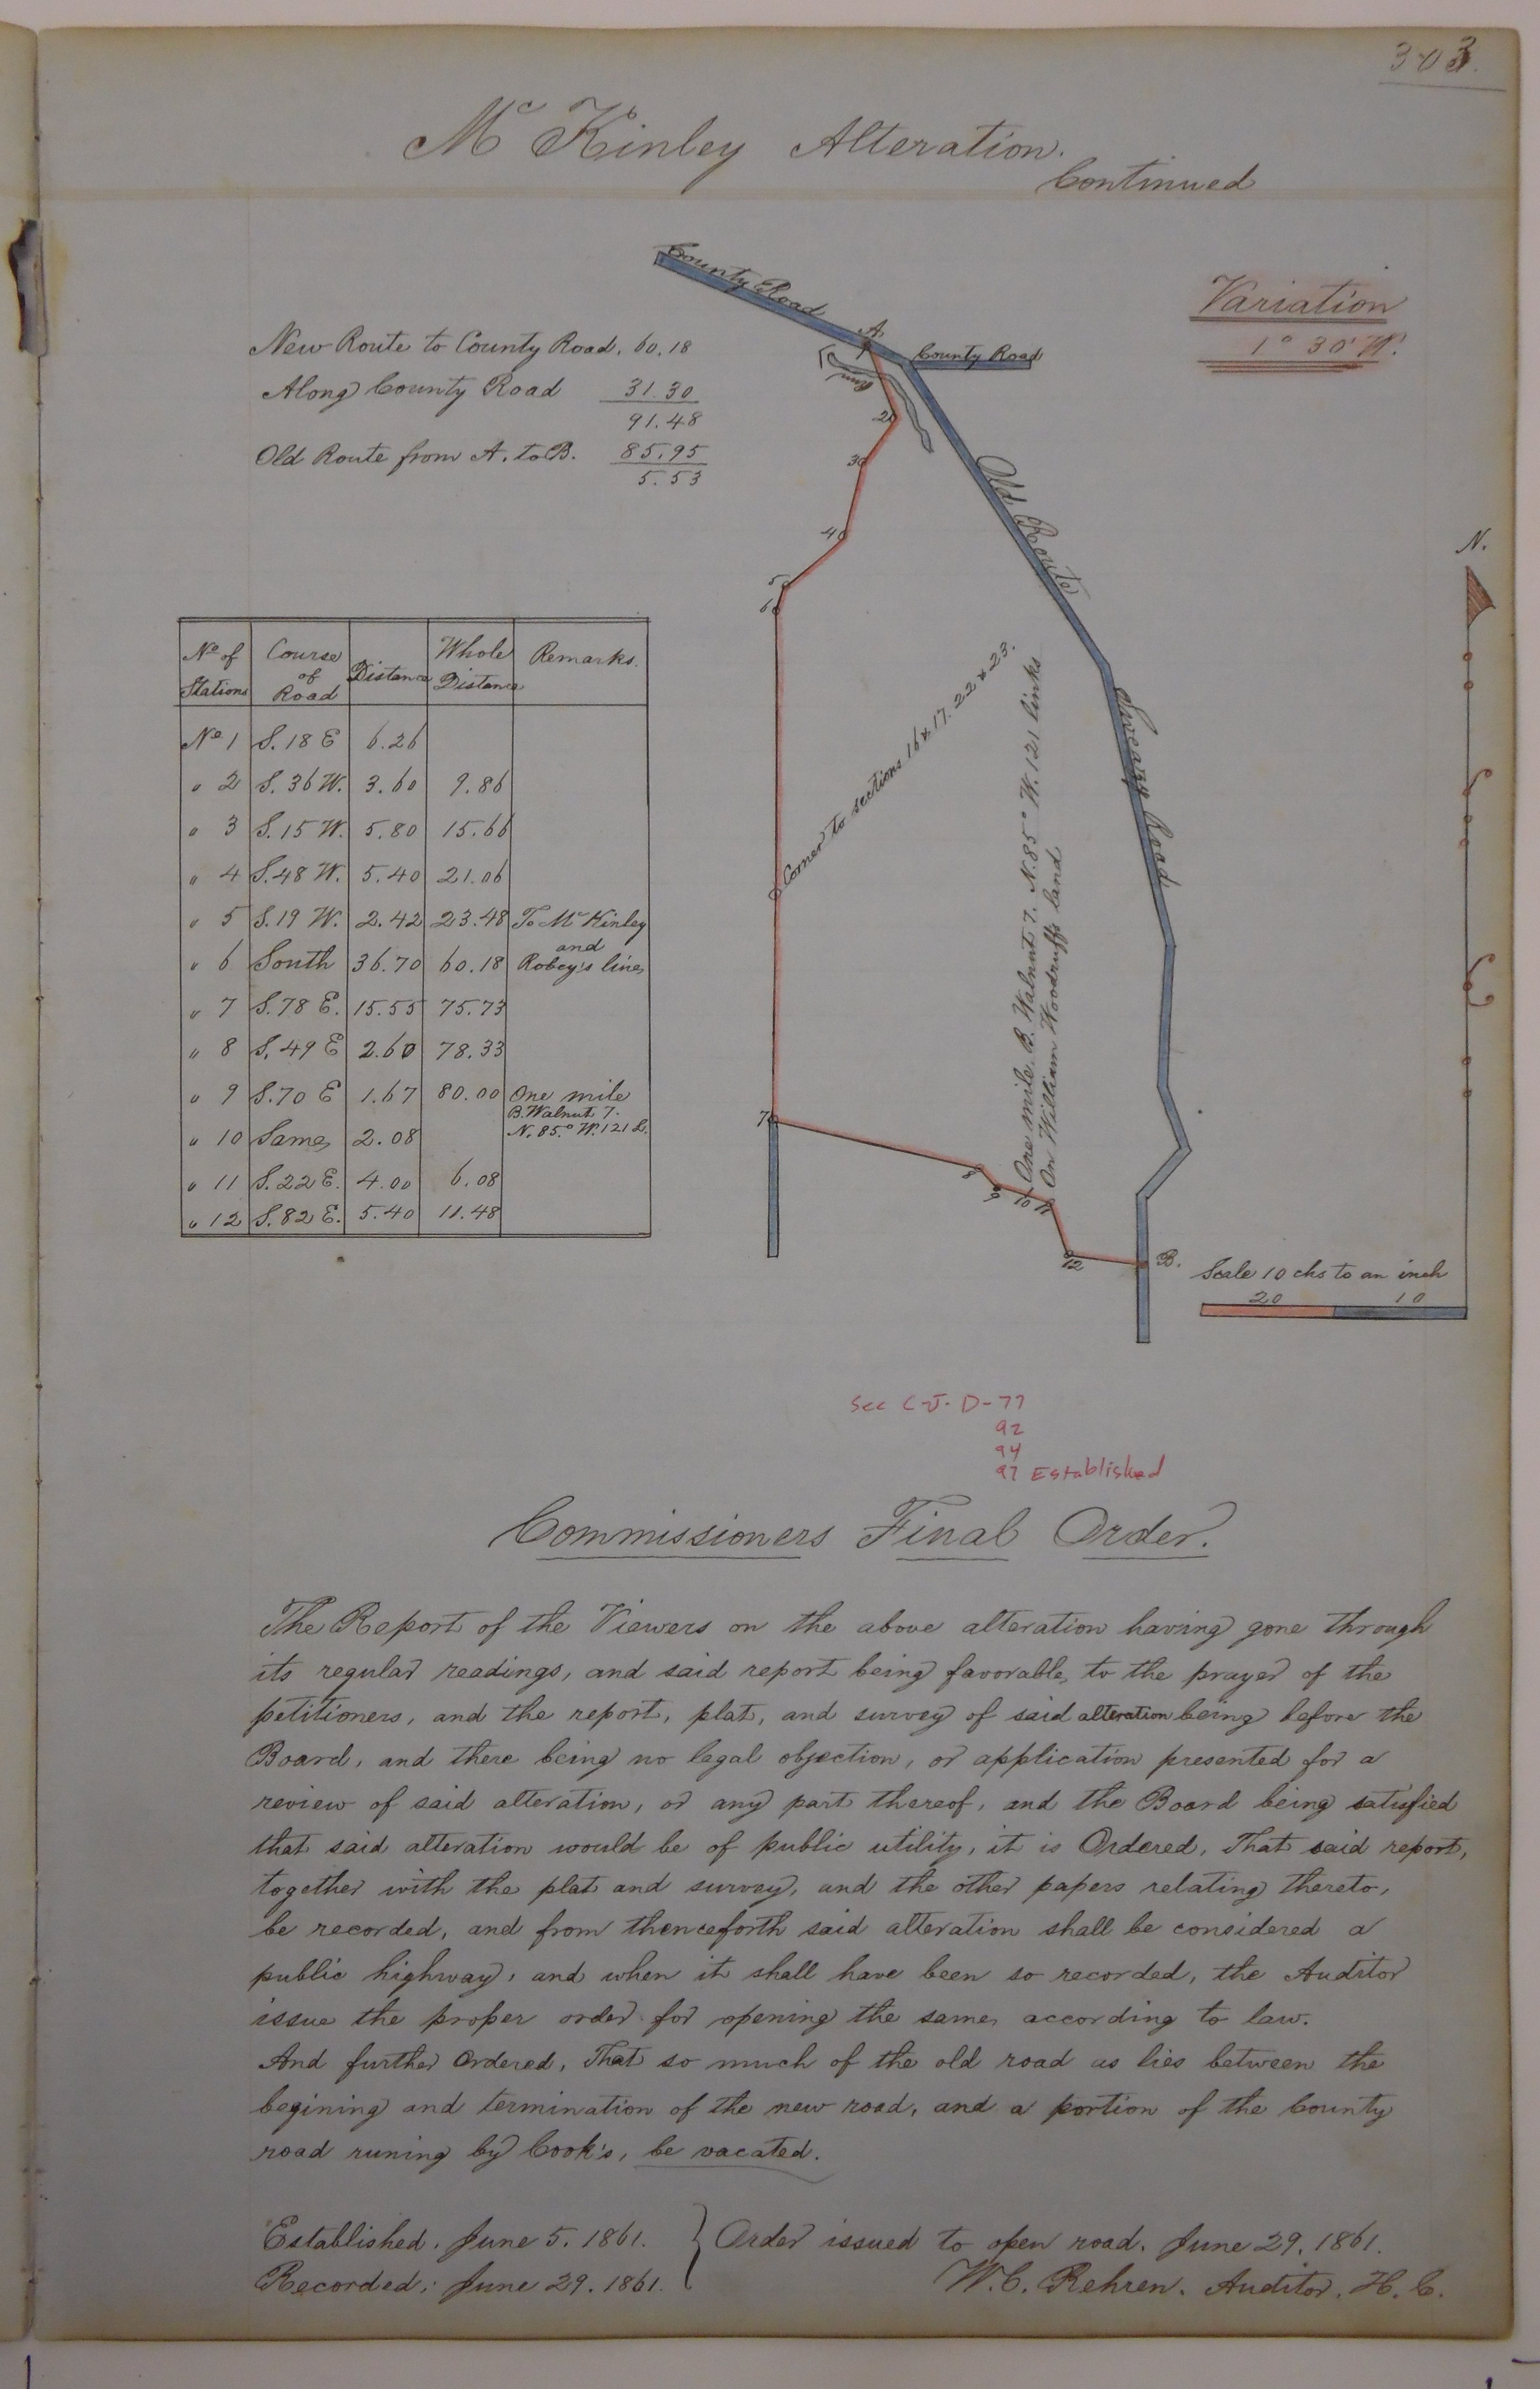 303.
Mc Kinley Alteration.
Continued
County Road
A.
County Road
Run
Variation
1° 30' W.
New Route to County Road. 60.18
Along County Road 31.30
91.48
Old Route from A. to B. 85.95
5.53
2
3
4
5
6
Old Route
N.
No of Stations | Course of Road | Distance | Whole Distance | Remarks.
No 1 | S. 18 E | 6.26
" 2 | S. 36 W. | 3.60 | 9.86
" 3 | S. 15 W. | 5.80 | 15.66
" 4 | S. 48 W. | 5.40 | 21.06
" 5 | S. 19 W. | 2.42 | 23.48 | To Mc Kinley
and
" 6 | South | 36.70 | 60.18 | Robey's line
" 7 | S. 78 E. | 15.55 | 75.73
" 8 | S. 49 E | 2.60 | 78.33
" 9 | S. 70 E | 1.67 | 80.00 | One mile
B. Walnut 7.
" 10 | Same | 2.08 | N. 85.° W. 121 L.
" 11 | S. 22 E. | 4.00 | 6.08
" 12 | S. 82 E. | 5.40 | 11.48
Corner to sections 16 & 17. 22 & 23.
One mile. B. Walnut 7. N. 85° W. 121 links
On William Woodruffs land
Road
7
8
9
10
11
12
B.
Scale 10 chs to an inch
20 10
See C-J- D-77
92
94
97 Established
Commissioners Final Order.
The Report of the Viewers on the above alteration having gone through
its regular readings, and said report being favorable to the prayer of the
petitioners, and the report, plat, and survey of said alteration being before the
Board, and there being no legal objection, or application presented for a
review of said alteration, or any part thereof, and the Board being satisfied
that said alteration would be of public utility, it is Ordered, That said report,
together with the plat and survey, and the other papers relating thereto,
be recorded, and from thenceforth said alteration shall be considered a
public highway, and when it shall have been so recorded, the Auditor
issue the proper order for opening the same according to law.
And further Ordered, That so much of the old road as lies between the
begining and termination of the new road, and a portion of the County
road runing by Cook's, be vacated.
Established. June 5. 1861. } Order issued to open road. June 29. 1861.
Recorded; June 29. 1861. W.C. Rehren. Auditor. H. C.